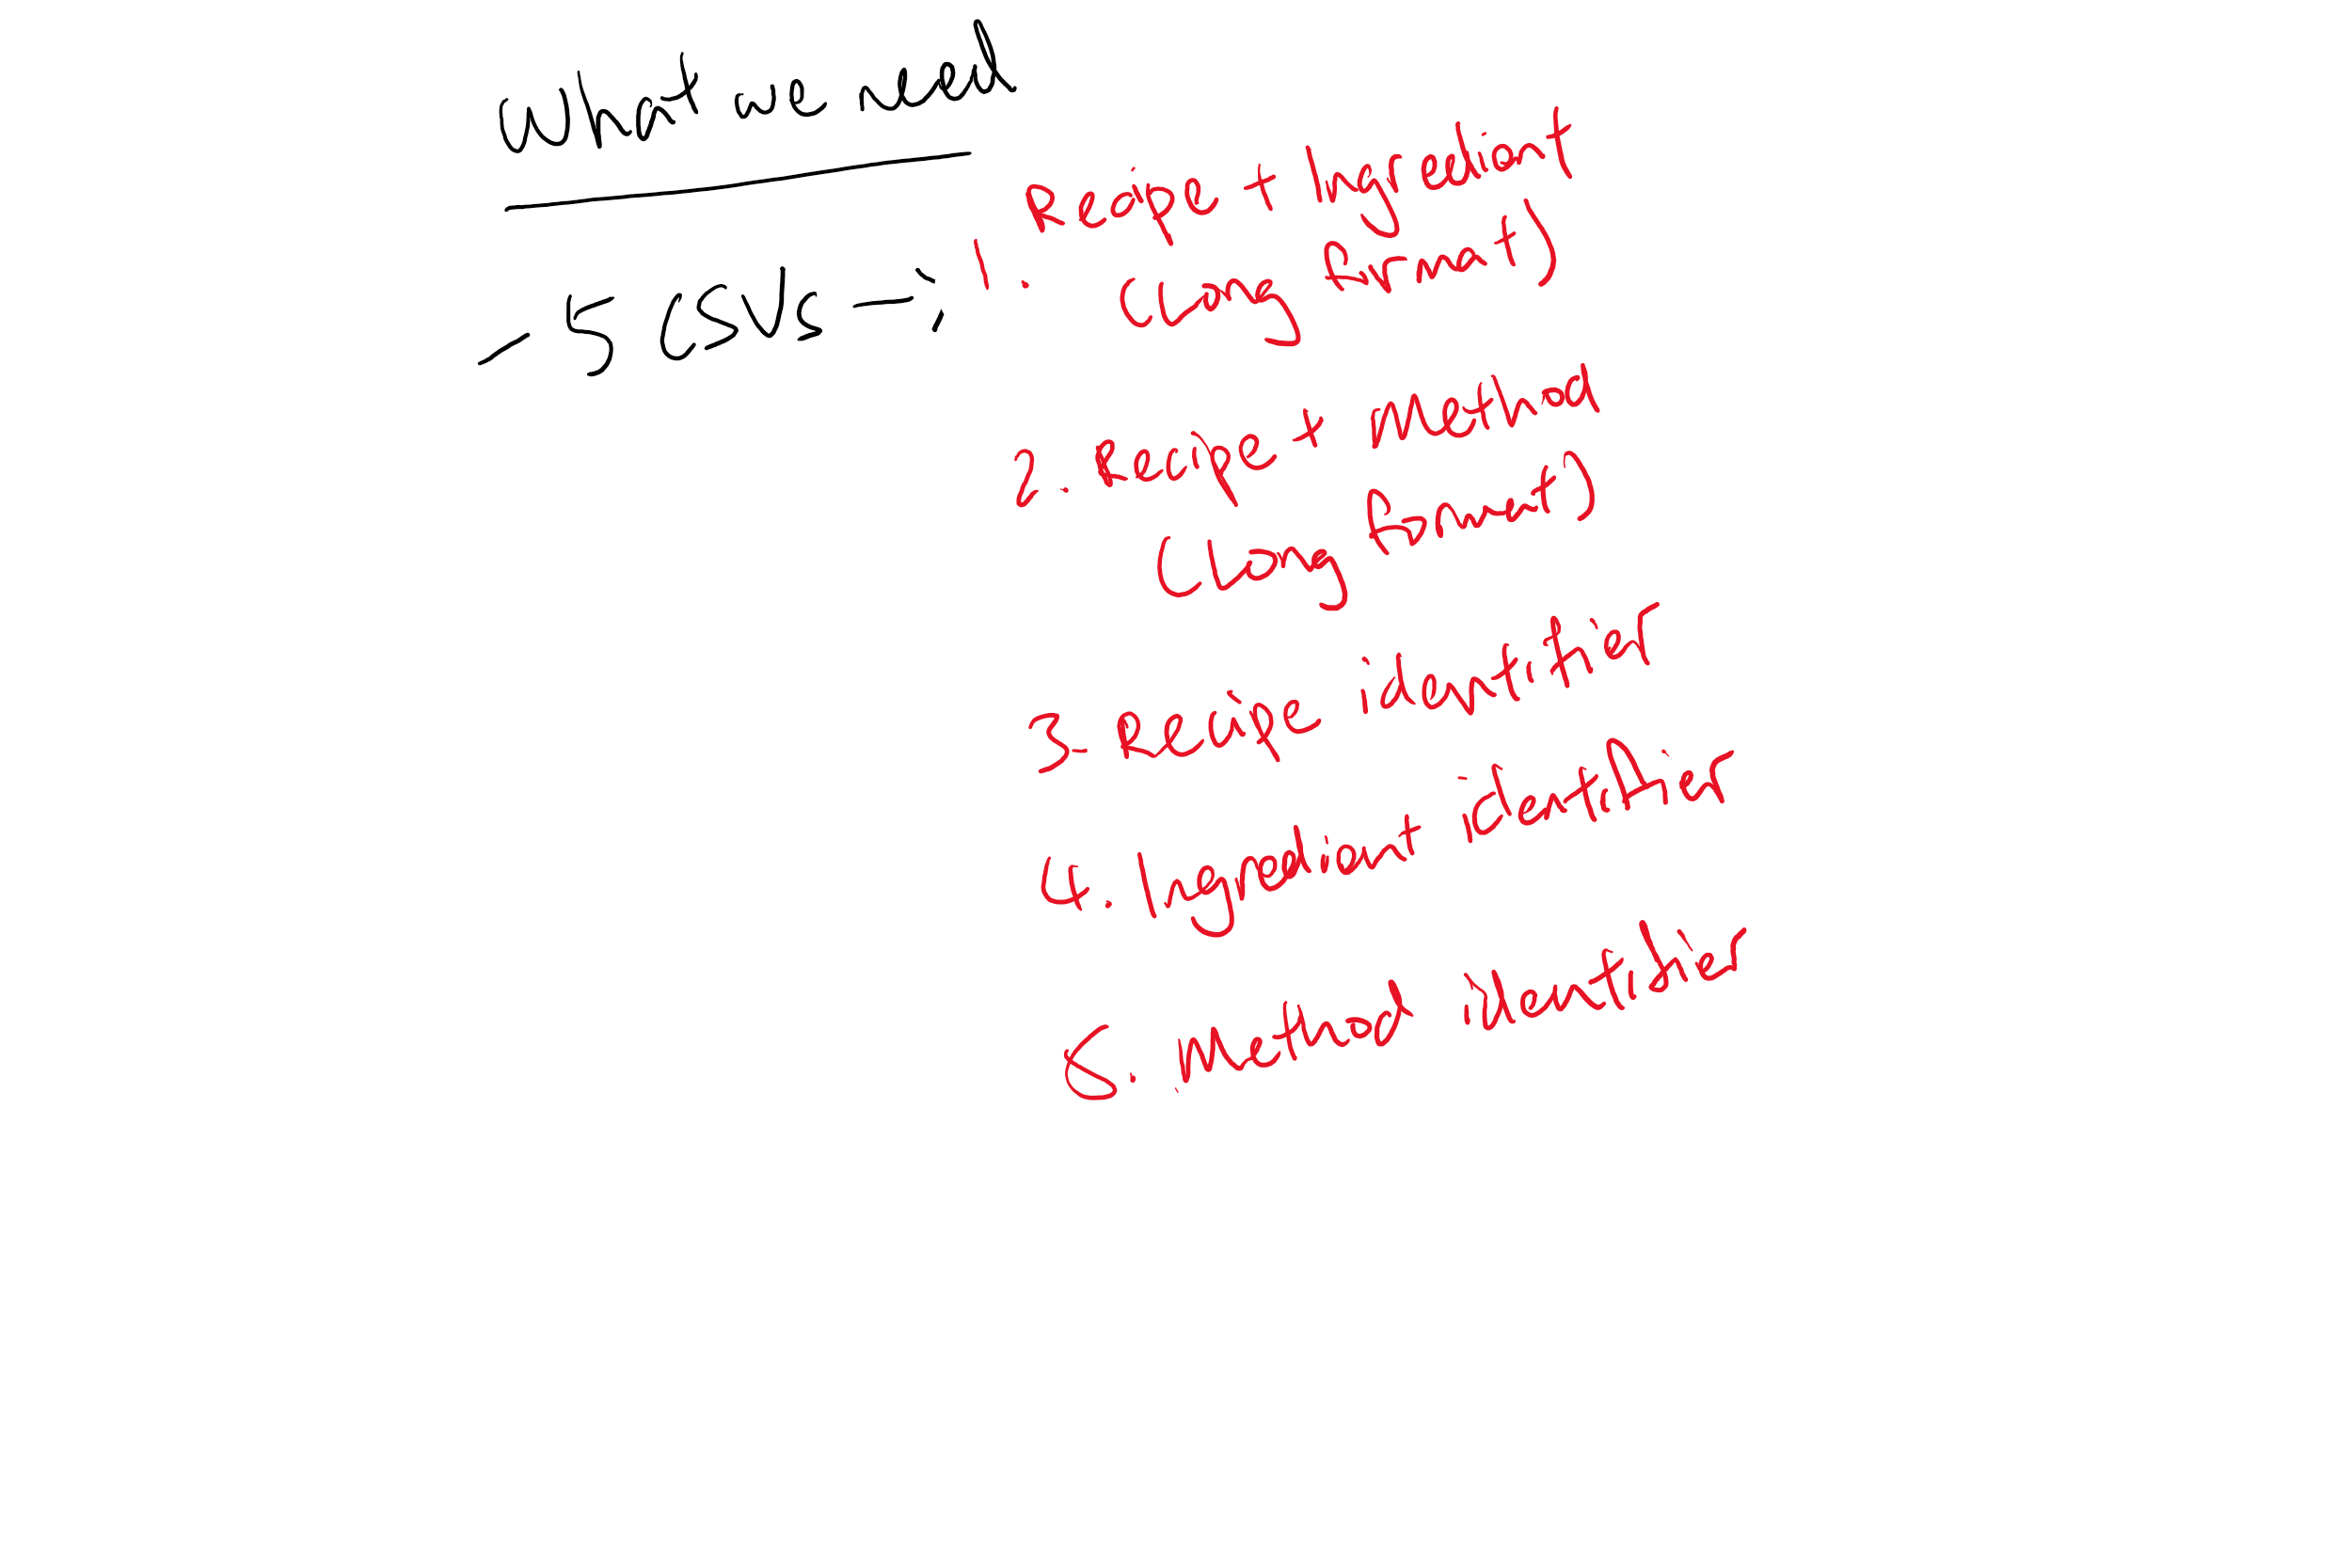 What we need
- 5 CSVs -> 1. Recipe + Ingredient
(long format)
2. Recipe + Method
(long format)
3. Recipe identifier
4. Ingredient identifier
5. Method identifier